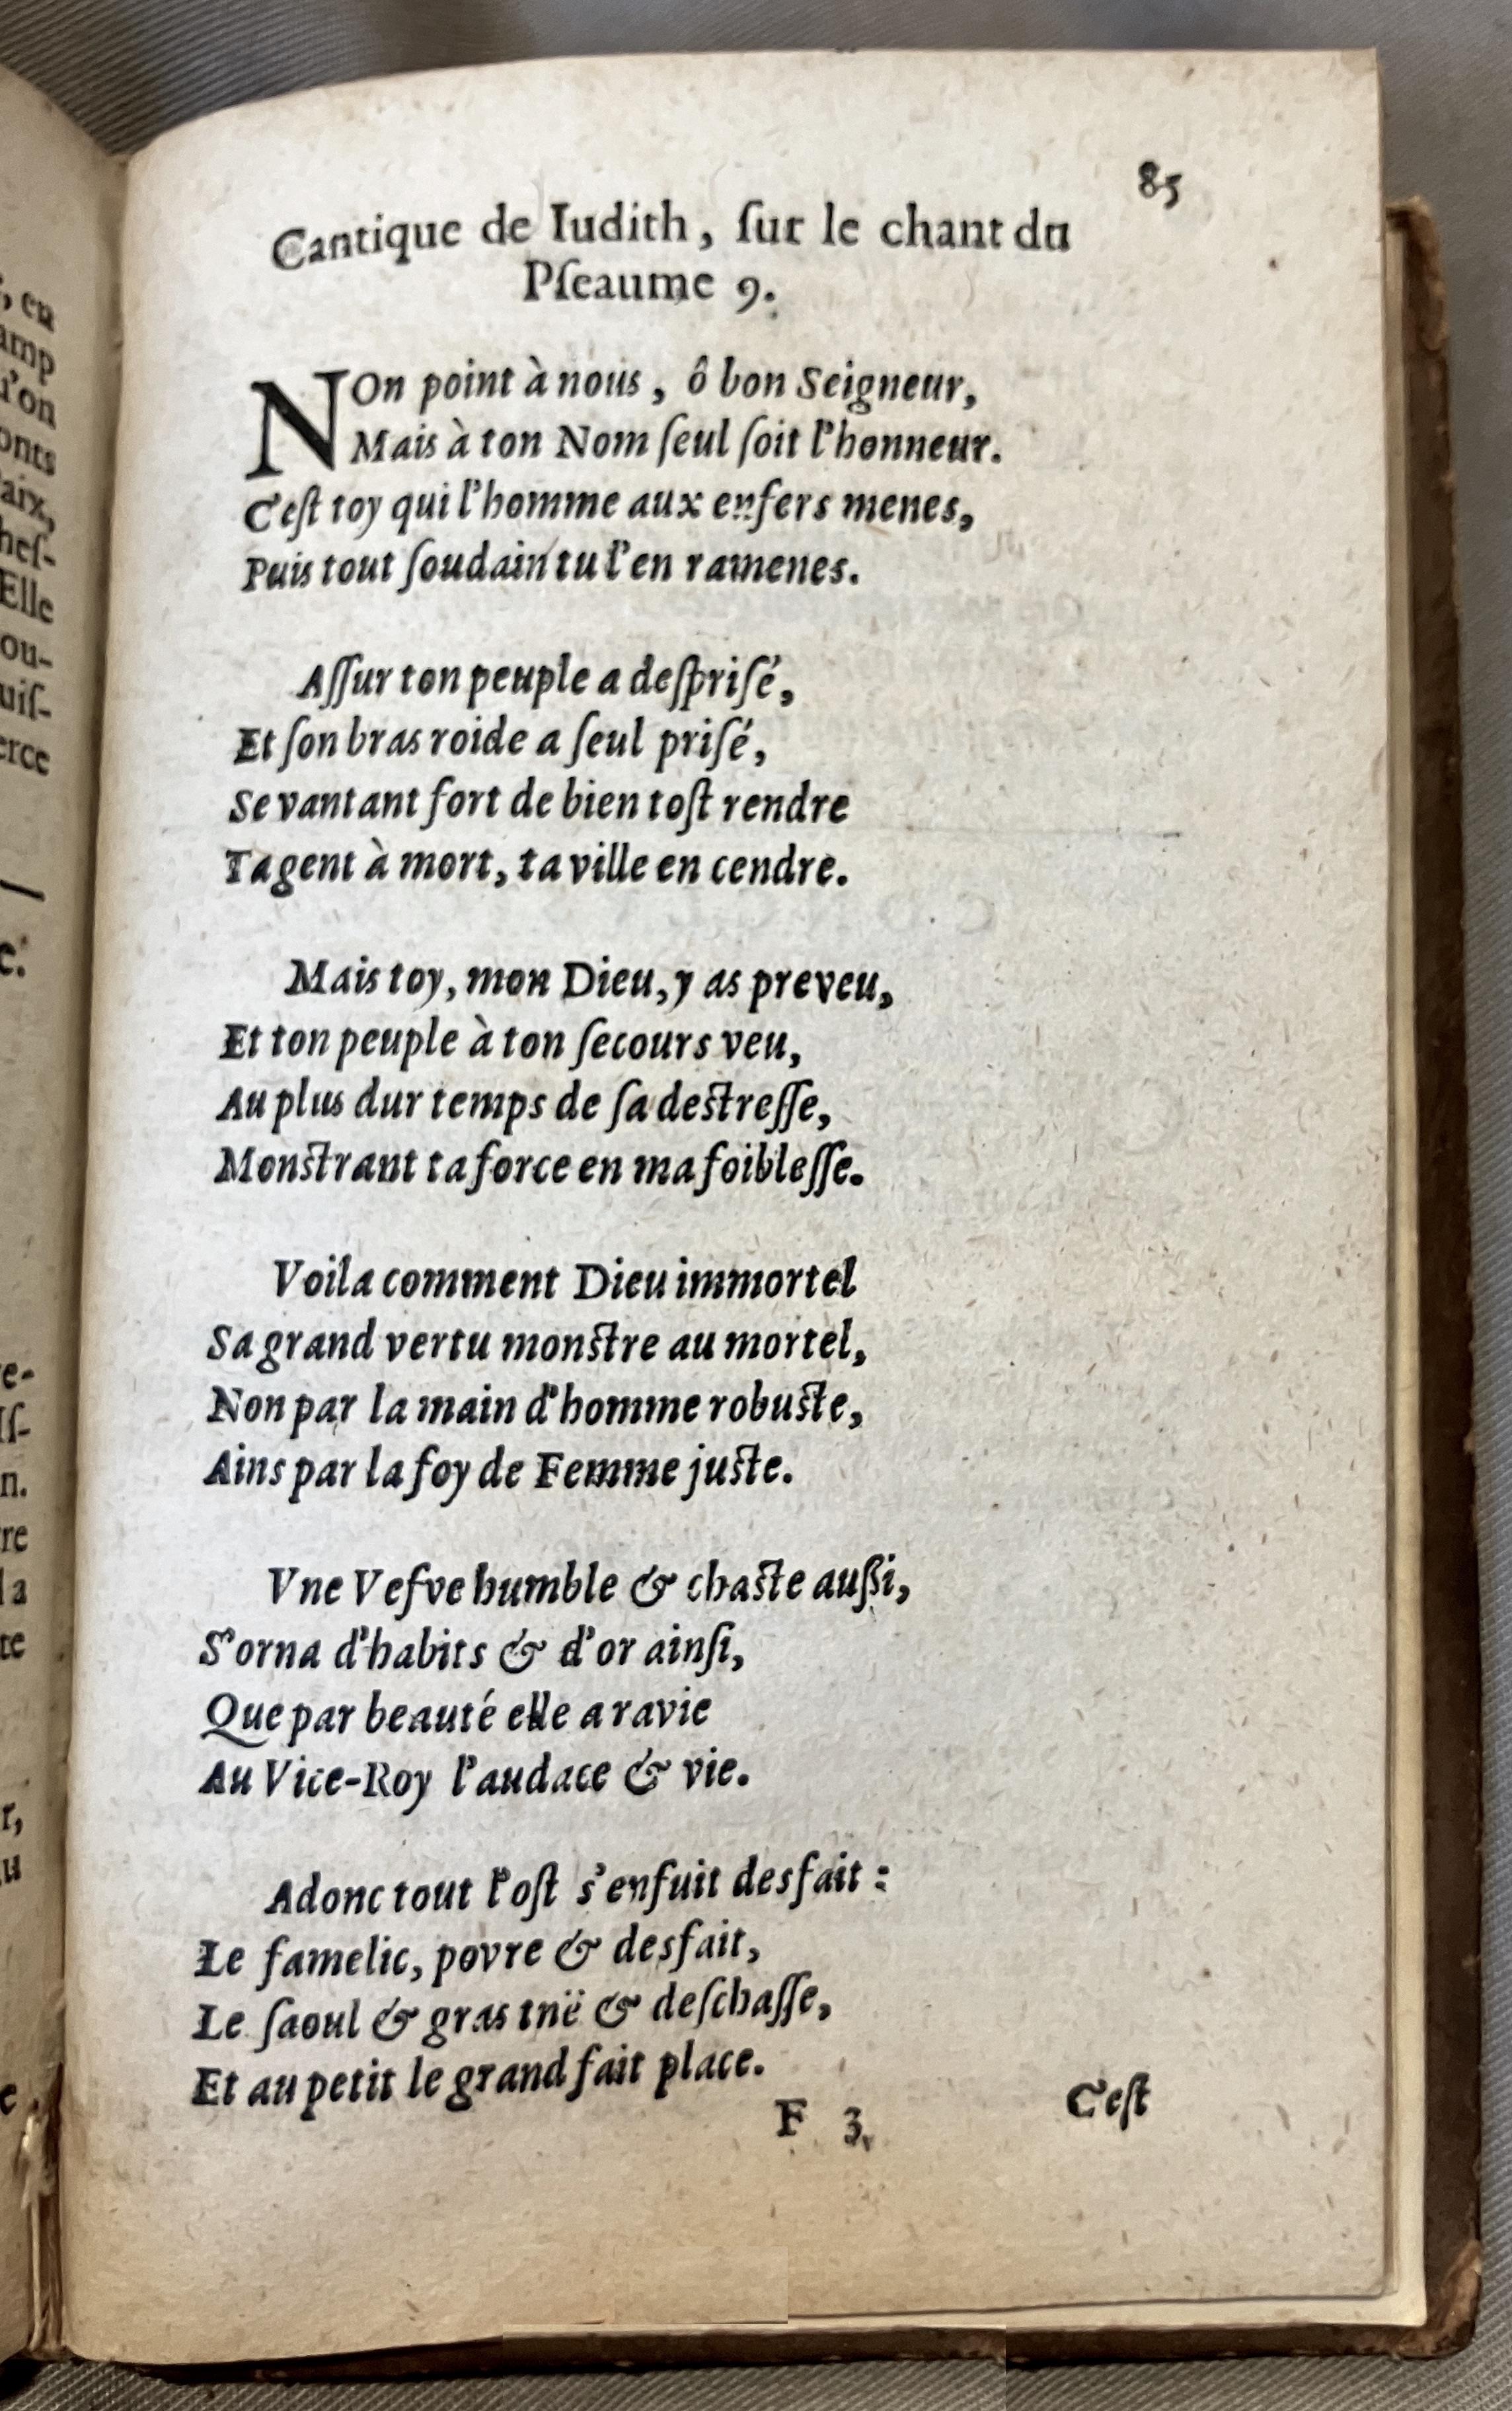 85
Cantique de Iudith, ſur le chant du
Pſeaume 9.
NOn point à nous, ô bon Seigneur,
Mais à ton Nom ſeul ſoit l'honneur.
C'eſt toy qui l'homme aux enfers menes,
Puis tout ſoudain tu l'en ramenes.
Aſſur ton peuple a deſpriſé,
Et ſon bras roide a ſeul priſé,
Se vantant fort de bien toſt rendre
Ta gent à mort, ta ville en cendre.
Mais toy, mon Dieu, y as preveu,
Et ton peuple à ton ſecours veu,
Au plus dur temps de ſa deſtreſſe,
Monſtrant ta force en ma foibleſſe.
Voila comment Dieu immortel
Sa grand vertu monſtre au mortel,
Non par la main d'homme robuſte,
Ains par la foy de Femme juſte.
Vne Vefve humble & chaſte außi,
S'orna d'habits & d'or ainſi,
Que par beauté elle a ravie
Au Vice-Roy l'audace & vie.
Adonc tout l'oſt s'enfuit desfait :
Le famelic, povre & desfait,
Le ſaoul & gras tnë & deſchaſſe,
Et au petit le grand fait place.
F 3. C'eſt